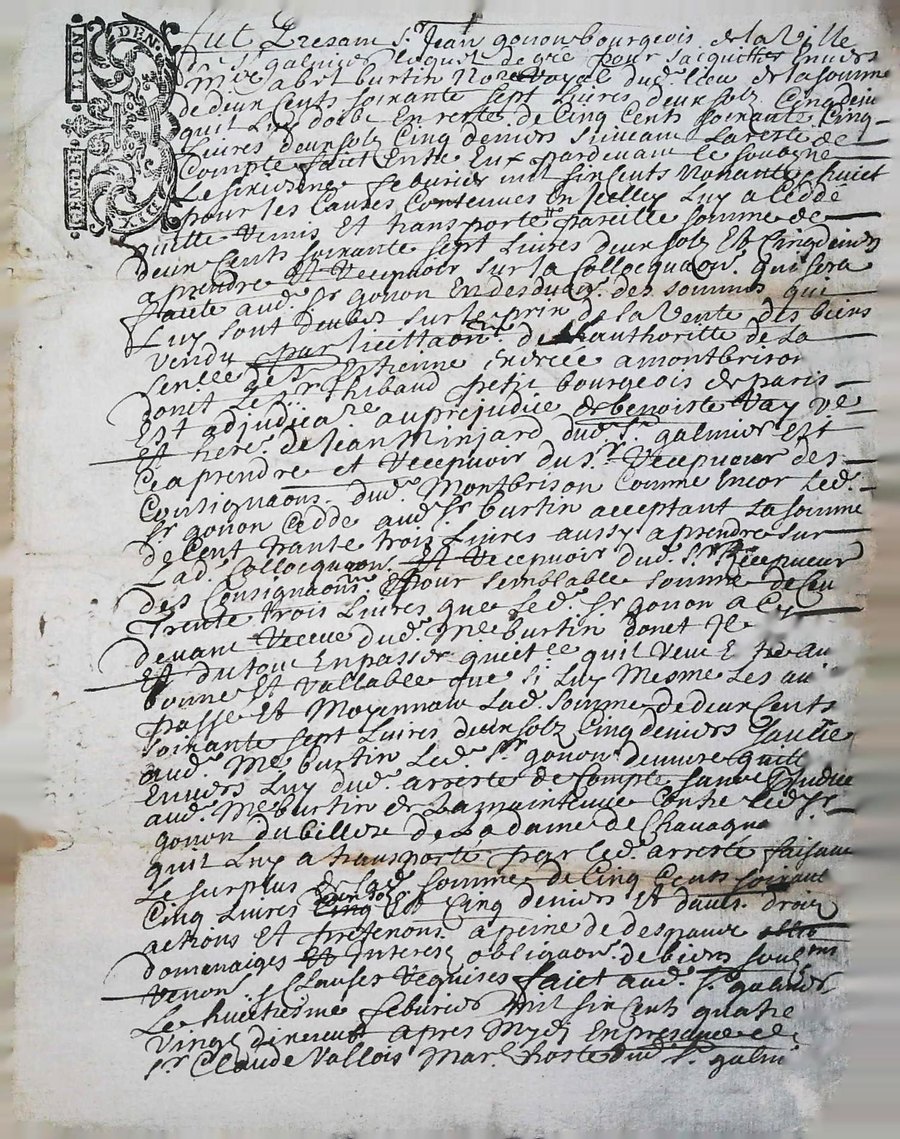 GEN. DE LION DEN.
fut Presant Sr Jean gonon bourgeois de la Ville
de St galmier lequel de gré pour sacquitter Envers
Mre Cabrl burtin Nore Royal dud. lieu de la somme
de deux Cents soixante sept livres deux solz Cinq den
quil Luy doibt En reste de Cinq Cents soixante Cinq
Livres deux solz Cinq deniers suivant Lareste de
Compte faict Entre Eux pardevant le soubsigné
Le seiziesme feburier mil six Cents Nonante huict
pour les Causes Contenues En Icelluy Luy a Ceddé
quitte remis Et transporté pareille somme de
deux Cents soixante sept Livres deux solz Et Cinq deniers
a prendre Et recepvoir sur la Collocquaon. qui sera
faicte aud. Sr gonon En des des sommes qui
Luy sont deubes sur le prix de la Vente des biens
vendu par licittaon de Lauthoritte de La
senlle de St Estienne Exercée a montbrison
donct le Sr Thibaud petit bourgeois de paris
Est adjudicare au prejudice de benoiste Vay ve
Et here. de Jean Minjard dud. St galmier Est
Ce a prendre et recepvoir du Sr recepveur des
Consignaons. dud. Montbrison Comme Encor Led.
Sr gonon Cedde aud. Sr burtin acceptant La somme
de Cent trante trois Livres aussy a prendre sur
Lad. Collocquaon. Et recepvoir dud. Sr Recepveur
des Consignaons. Et pour semblable somme de Cen
Trente trois Livres que Led. Sr gonon a Cy
devant receue dud. Me burtin donct Il
Et du tout En passer quictce quil veut Estre au
bonne Et vallable que si Luy Mesme Les au
passé Et Moyennant Lad. somme de deux Cents
soixante sept Livres deux solz Cinq deniers
aud. Me burtin Led. Sr gonon demeure quitte
Envers Luy dud. arresté de Compte sans Prejudice
aud. Me burtin de La maintenue Contre Led. Sr
gonon du billest de La dame de Chavagna
quil Luy a transporté par led. arresté faisant
Le surplus de lad. somme de Cinq Cents soixant
Cinq Livres deux solz Et Cinq deniers Et dault. droix
actions Et pretenons. a peine de despans
domenaiges Et Interest obligaon. de biens soubzms
renons. & Clauses requises faict aud. St galmier
Le huictiesme feburier Mil six Cents quatre
vingt dix neuf apres Mydy En presance de
Sr Claude Vallois Mar. hoste dud. St galmi